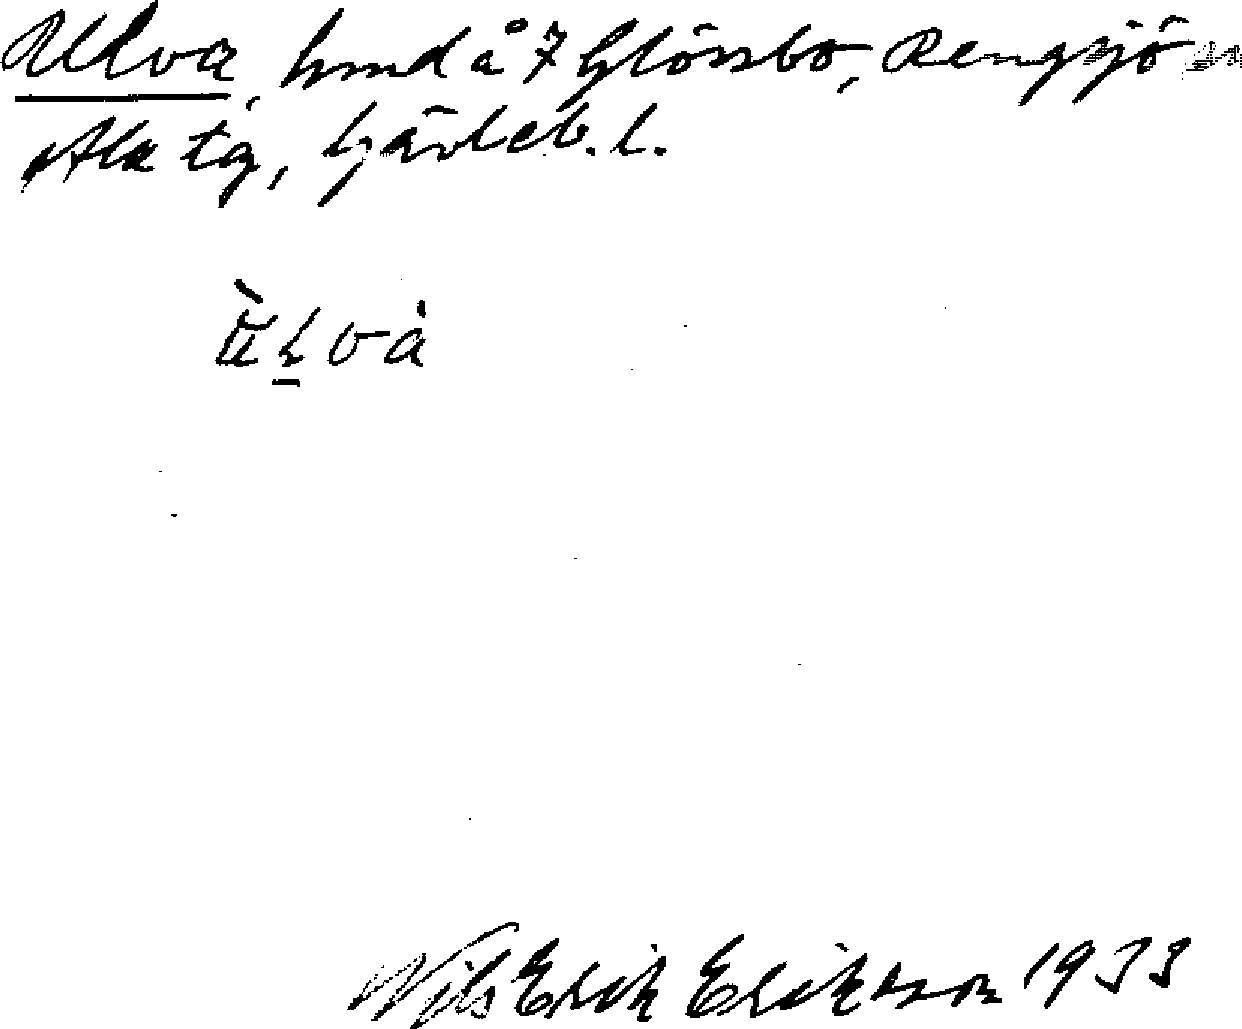 Ulva, hmd å 7 Glössbo, Rengsjö sn
Ala tg, Gävleb. l.
Nils Erik Eriksson 1933